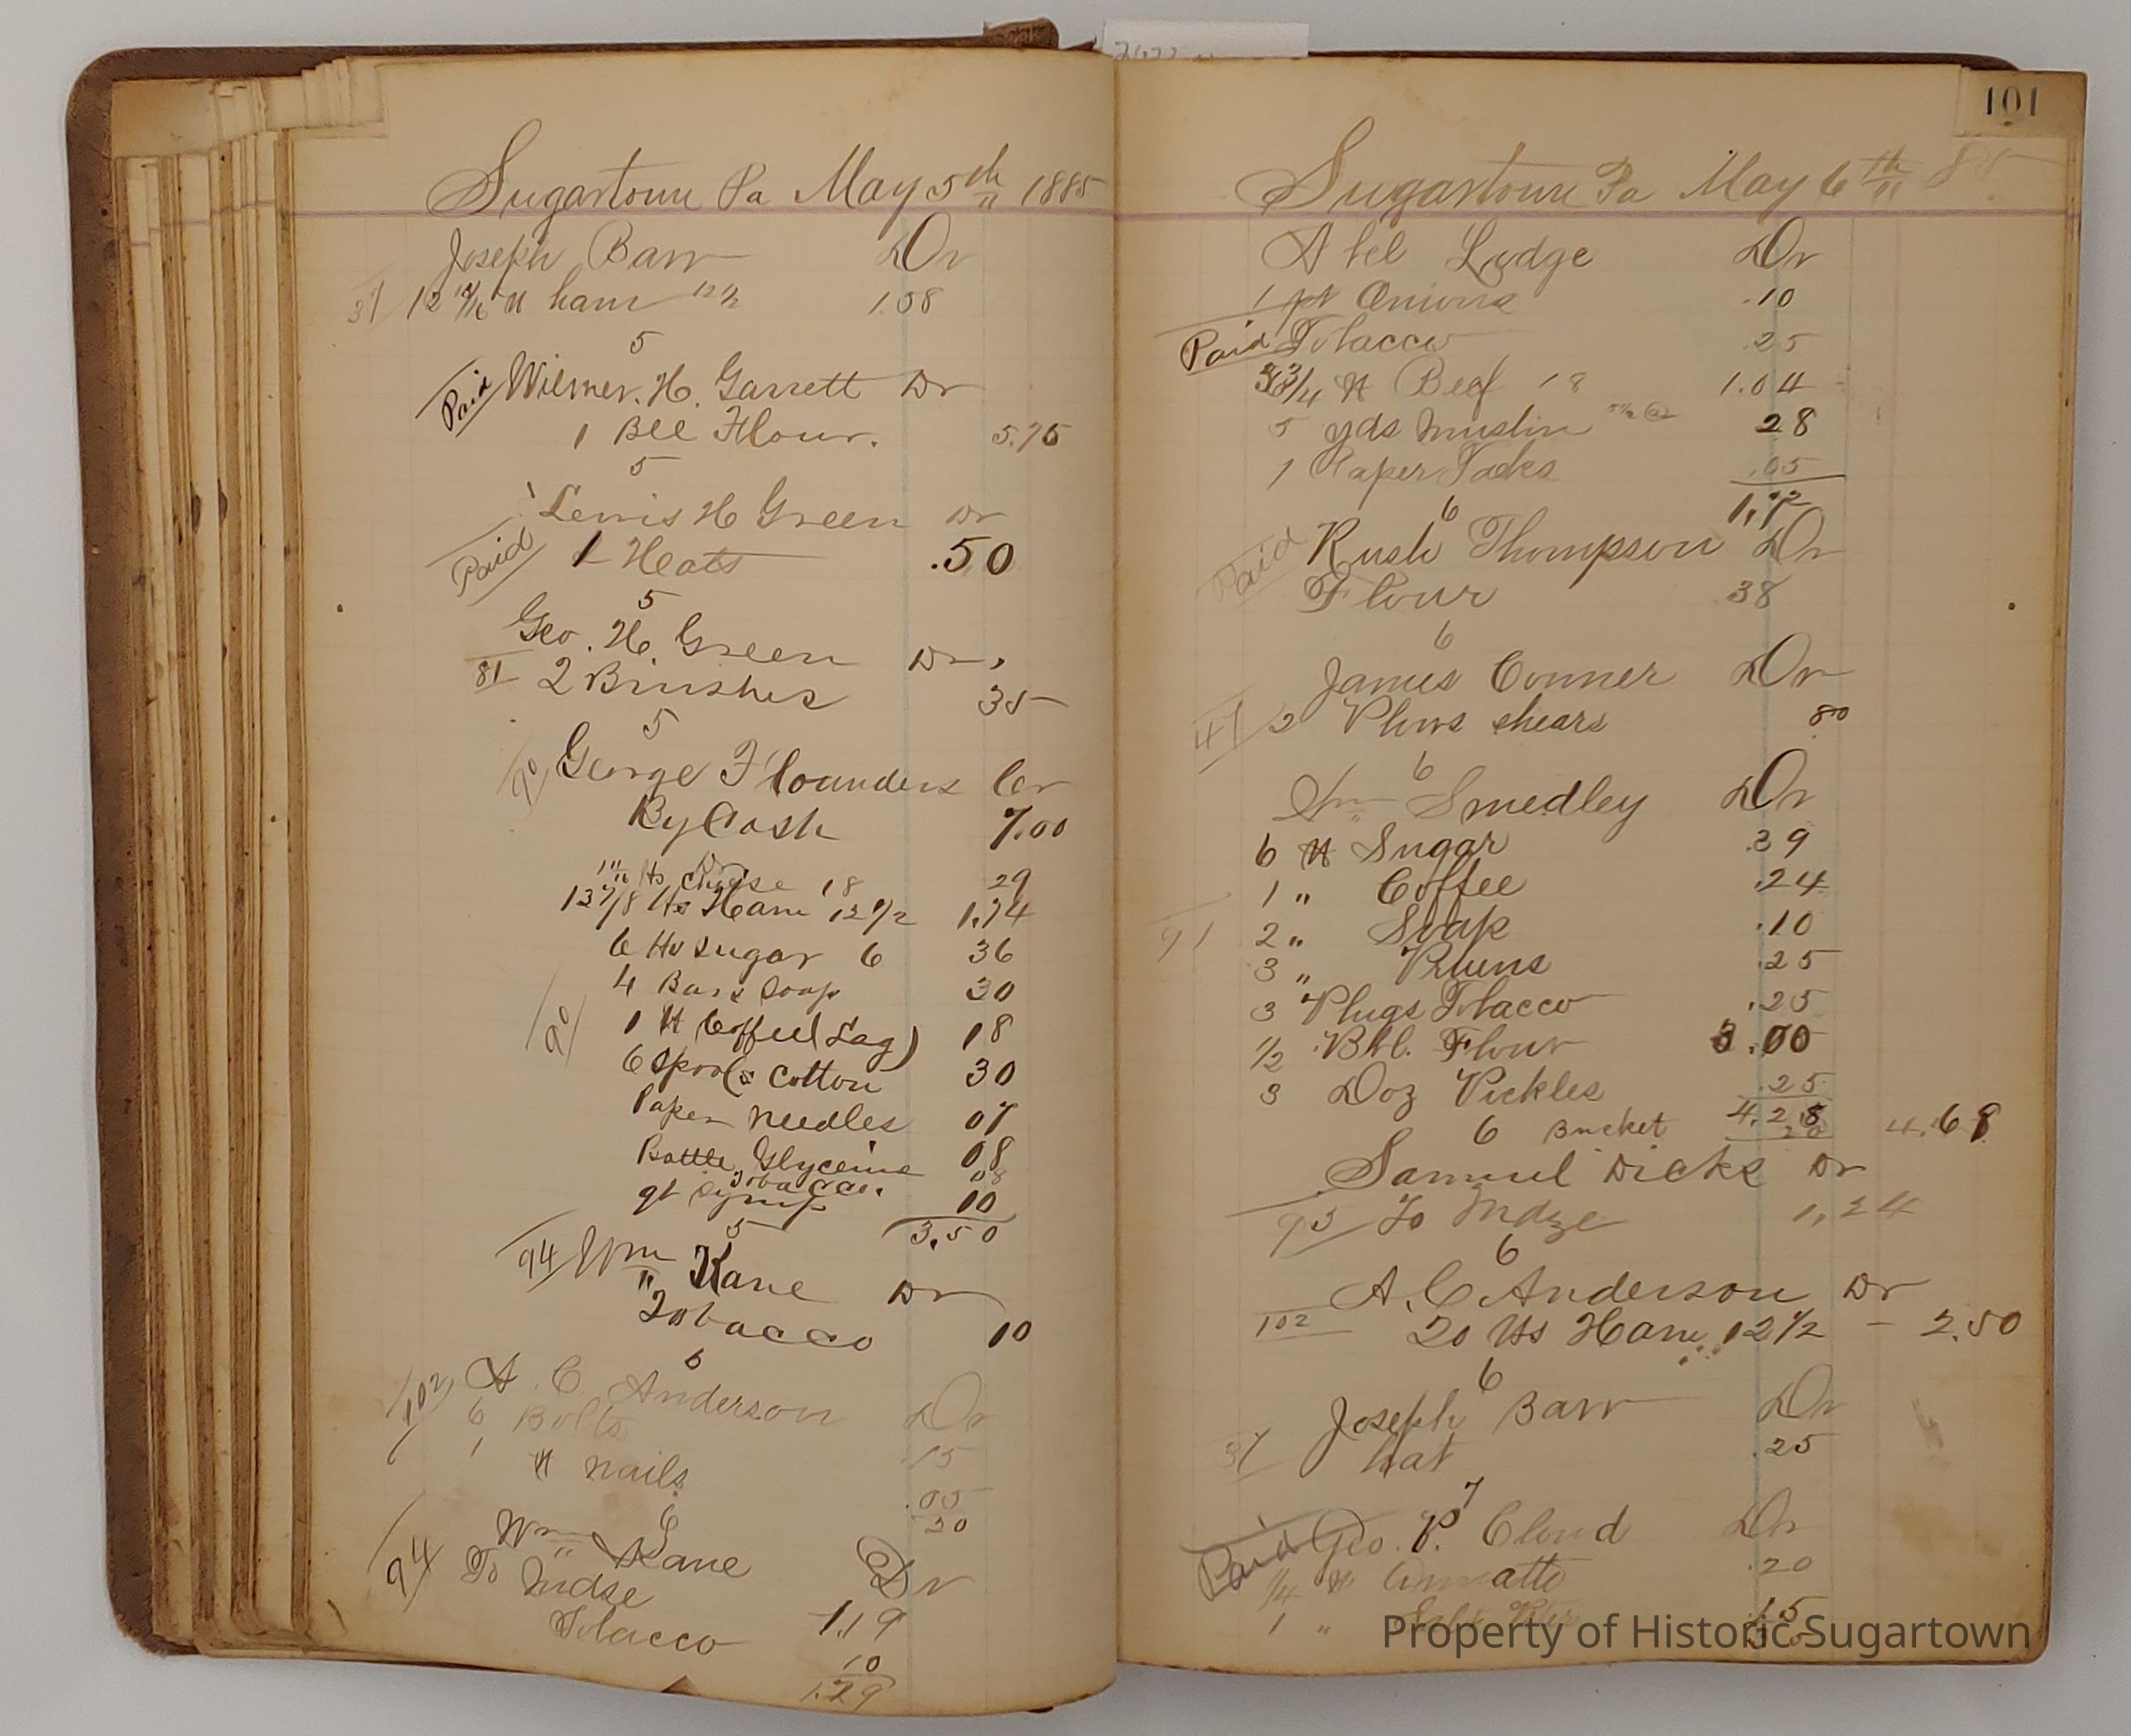 Sugartown Pa May 5th 1885
Joseph Barr Dr
37 12 10/16 # ham 12 1/2 1.58
5
Paid Wilmer. H. Garrett Dr
1 Bll Flour. 5.75
5
Lewis H Green Dr
Paid 1 Heats .50
5
Geo. H. Green Dr.
81 2 Brushes 35
5
90 George Flounders Cr
By Cash 7.00
Dr
1 10/16 lbs Cheese 18 29
13 7/8 lbs Ham 12 1/2 1.74
6 lbs Sugar 6 36
4 Bars Soap 30
90 1 # Coffee (Lag) 18
6 Spools Cotton 30
Paper Needles 07
Bottle Glycerine 08
Tobacco. 08
qt Syrup 10
3.50
5
94 Wm Kane Dr
Tobacco 10
6
102 A. C. Anderson Dr
6 Bolts .15
1 # nails .05
20
6
94 Wm Kane Dr
To Mdse 1.19
Tobacco 10
1.29
101
Sugartown Pa May 6th 85
Abel Lodge Dr
1 pt Onions .10
Paid Tobacco .25
# Beef 18 1.04
5 yds Muslin 5 1/2 @ 28
1 Paper Tacks .05
1.72
6
Paid Rush Thompson Dr
Flour 38
6
James Conner Dr
47 2 Plows shears 80
6
Wm Smedley Dr
6 # Sugar .39
1 " Coffee .24
91 2 " Soap .10
3 " Pruens .25
3 Plugs Tobacco .25
1/2 Bbl. Flour 3.00
3 Doz Pickles .25
4.28
6 Bucket 20 4.68
Samuel Dicks Dr
95 To Mdze 1.24
6
A. C Anderson Dr
102 20 lbs Ham 12 1/2 - 2.50
6
Joseph Barr Dr
37 hat .25
7
Paid Geo. P. Cloud Dr
1/4 # Annatto .20
1 " 15
Property of Historic Sugartown